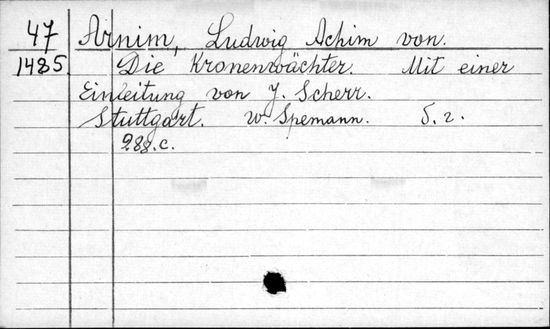 47 Arnim, Ludwig Achim von.
1485. Die Kronenwächter. Mit einer
Einleitung von J. Scherr.
Stuttgart. W. Spemann. S. z.
288. c.